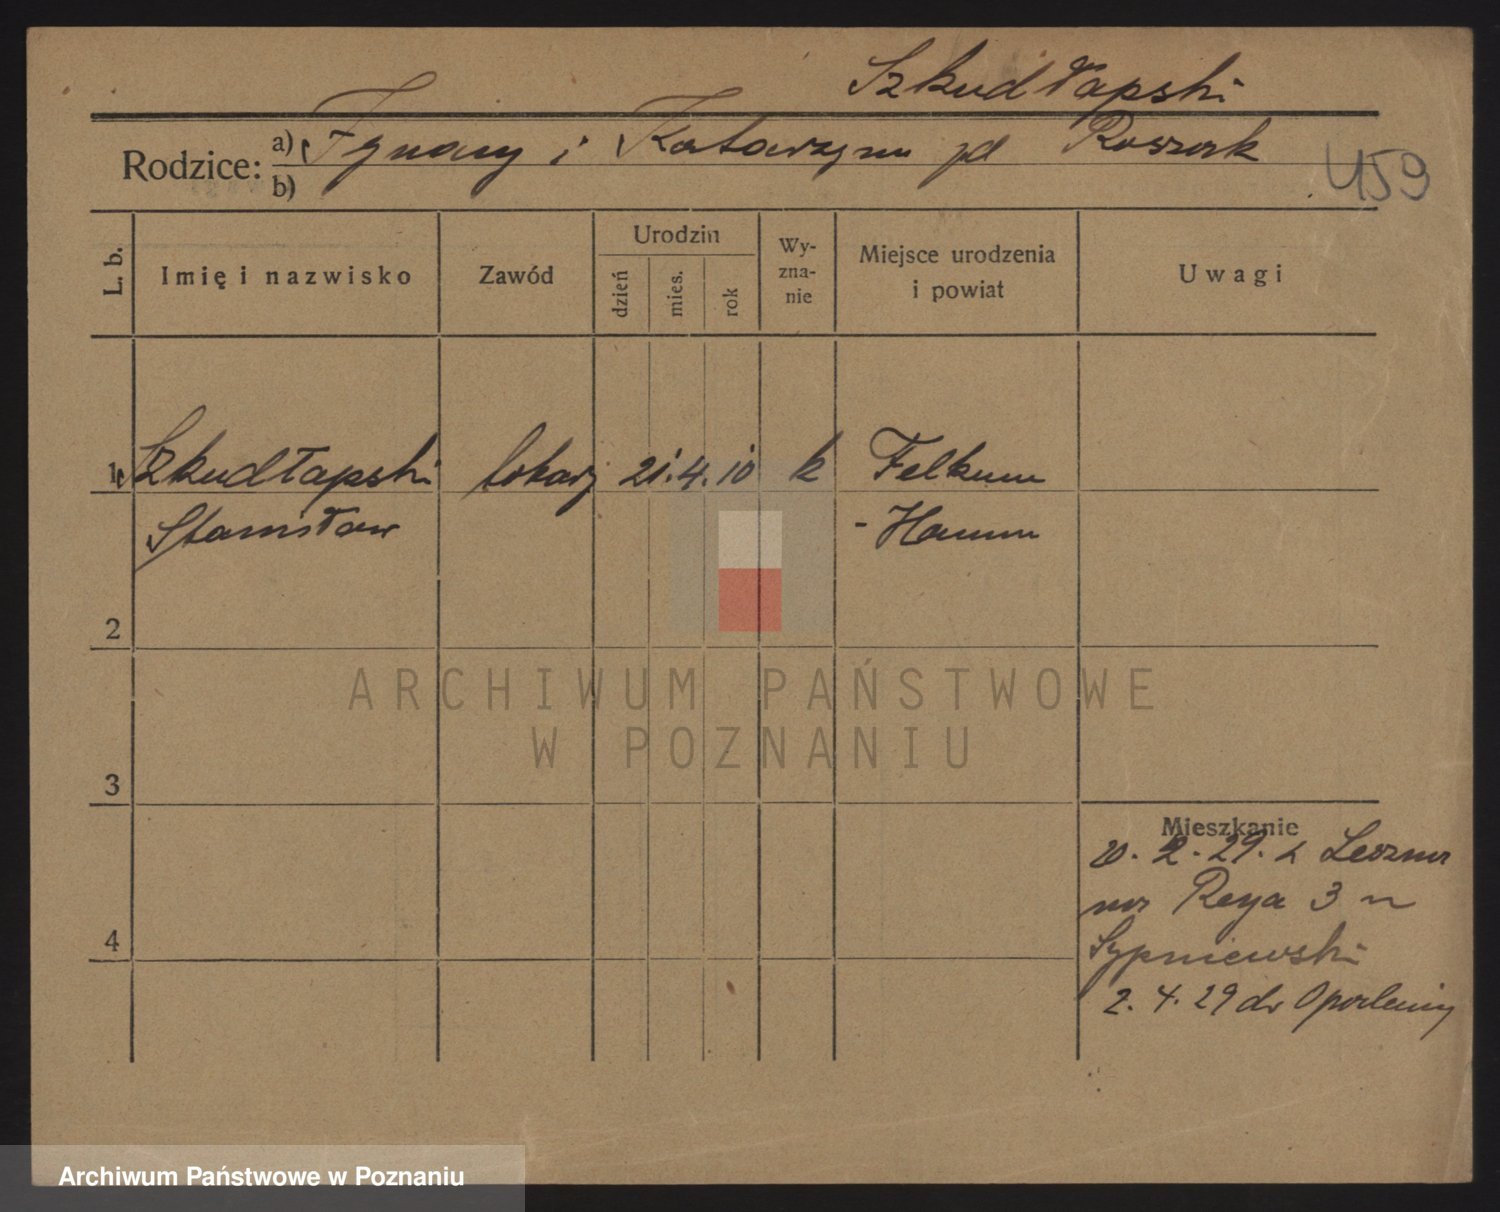 Szkudłapski
Rodzice: a) Ignacy i Katarzyna zd Roszak
b)
459
L. b.
Imię i nazwisko
Zawód
Urodzin
dzień
mies.
rok
Wy-
zna-
nie
Miejsce urodzenia
i powiat
Uwagi
1 Szkudłapski tokarz 21. 4. 10 k Felkum
Stanisław - Hamm
2
3
4
Mieszkanie
20. 2. 29. z Leszna
na Reya 3
Sypniewski
2. 4. 29 do Opalenicy
ARCHIWUM PAŃSTWOWE
W POZNANIU
Archiwum Państwowe w Poznaniu